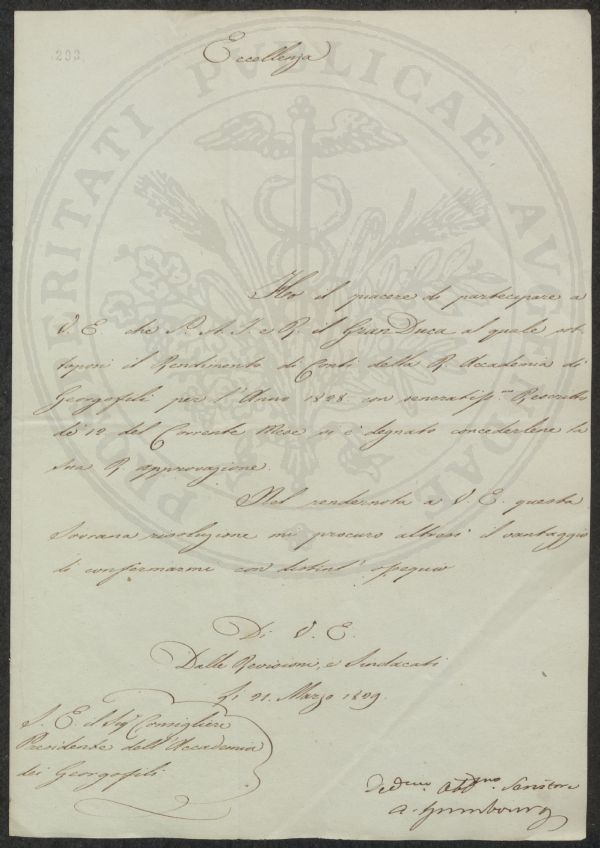 293
Eccellenza
Ho il piacere di partecipare a
V. E. che S. A. I. e R. il Gran Duca al quale sot-
toposi il Rendimento di Conti della R. Accademia di
Georgofili per l'Anno 1828 con veneratiss.mo Rescritto
de' 12 del Corrente Mese si è degnato concederlene la
sua R. approvazione.
Nel render nota a V. E. questa
Sovrana risoluzione mi procuro altresì il vantaggio
di confermarmi con distint.o ossequio
Di V. E.
Dalle Revisioni, e Sindacati
Li 21. Marzo 1829.
S. E. il Sig.r Consigliere
Presidente dell'Accademia
dei Georgofili
Dev.mo Obb.mo Servitore
PROSPERITATI PVBLICAE AVGENDAE